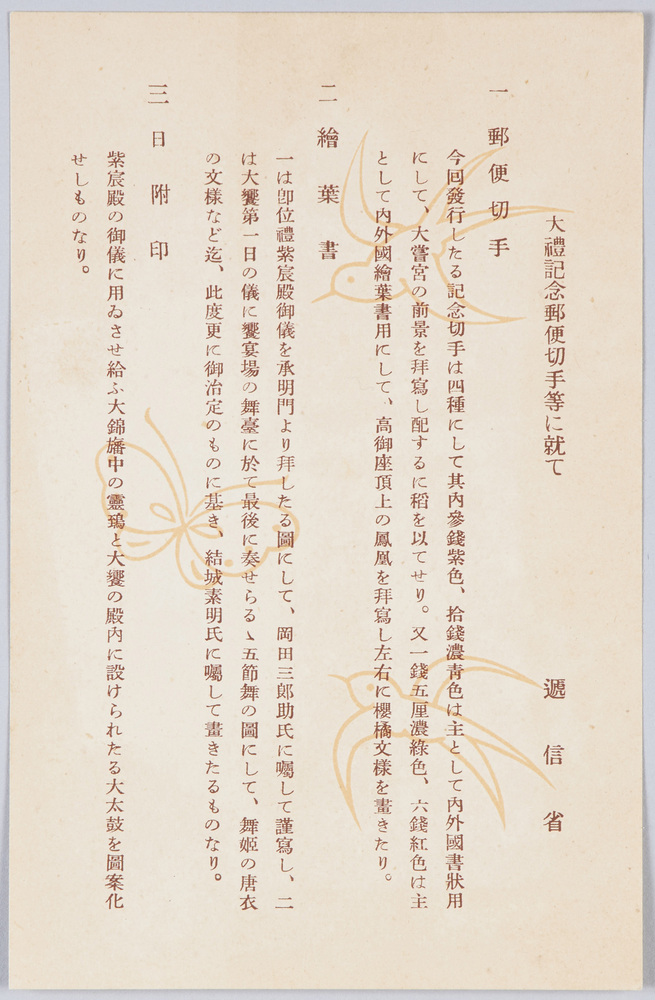 大禮記念郵便切手等に就て
遞信省
一 郵便切手
今回發行したる記念切手は四種にして其内參錢紫色、拾錢濃靑色は主として內外國書狀用
にして、大嘗宮の前景を拜寫し配するに稻を以てせり。又一錢五厘濃綠色、六錢紅色は主
として內外國繪葉書用にして、高御座頂上の鳳凰を拜寫し左右に櫻橘文樣を畫きたり。
二 繪葉書
一は卽位禮紫宸殿御儀を承明門より拜したる圖にして、岡田三郞助氏に囑して謹寫し、二
は大饗第一日の儀に饗宴場の舞臺に於て最後に奏せらるゝ五節舞の圖にして、舞姬の唐衣
の文樣など迄、此度更に御治定のものに基き、結城素明氏に囑して畫きたるものなり。
三 日附印
紫宸殿の御儀に用ゐさせ給ふ大錦旛中の靈鵄と大饗の殿內に設けられたる大太鼓を圖案化
せしものなり。